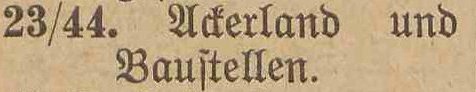 23/44. Ackerland und
Bauſtellen.